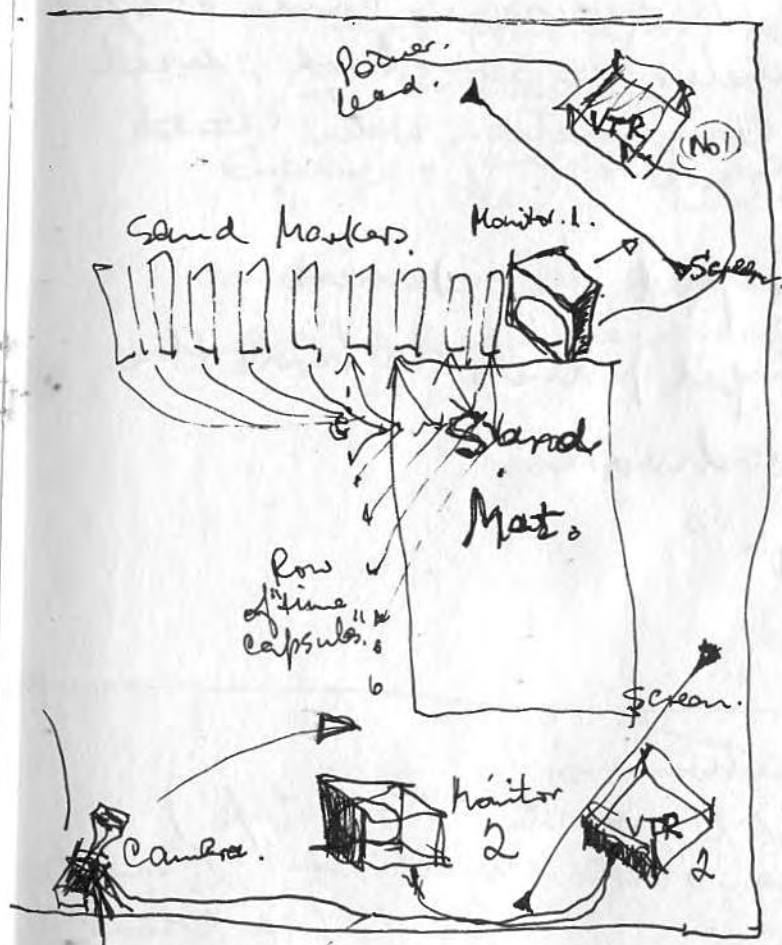 Power.
lead.
VTR.
No1
Sand Markers.
Monitor.1.
Screen.
Sand
Mat.
Row
of "time
capsuls."
Screen.
Monitor
2
VTR
2
Camera.